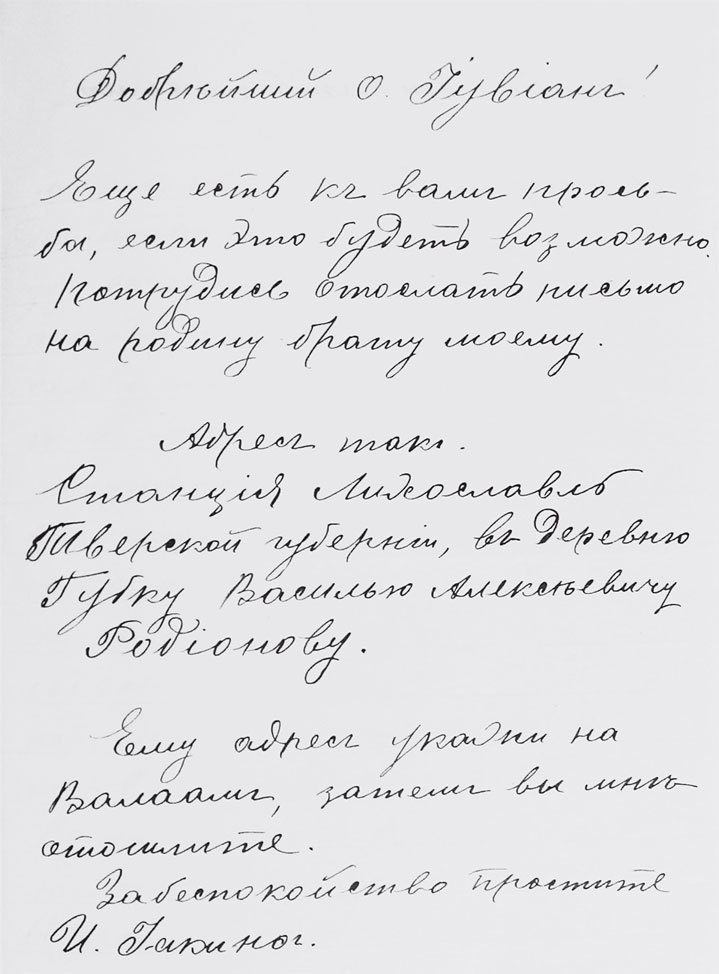 Добрѣйшій О. Іувіанъ!
Еще есть къ вамъ прось-
ба, если это будетъ возможно.
Потрудись отослать письмо
на родину брату моему.
Адресъ такъ.
Станція Лихославль
Тверской губерніи, въ деревню
Губку Василью Алексѣевичу
Родіонову.
Ему адресъ укажи на
Валаамъ, затемъ вы мнѣ
отошлите.
За беспокойство простите
И. Іакинѳъ.